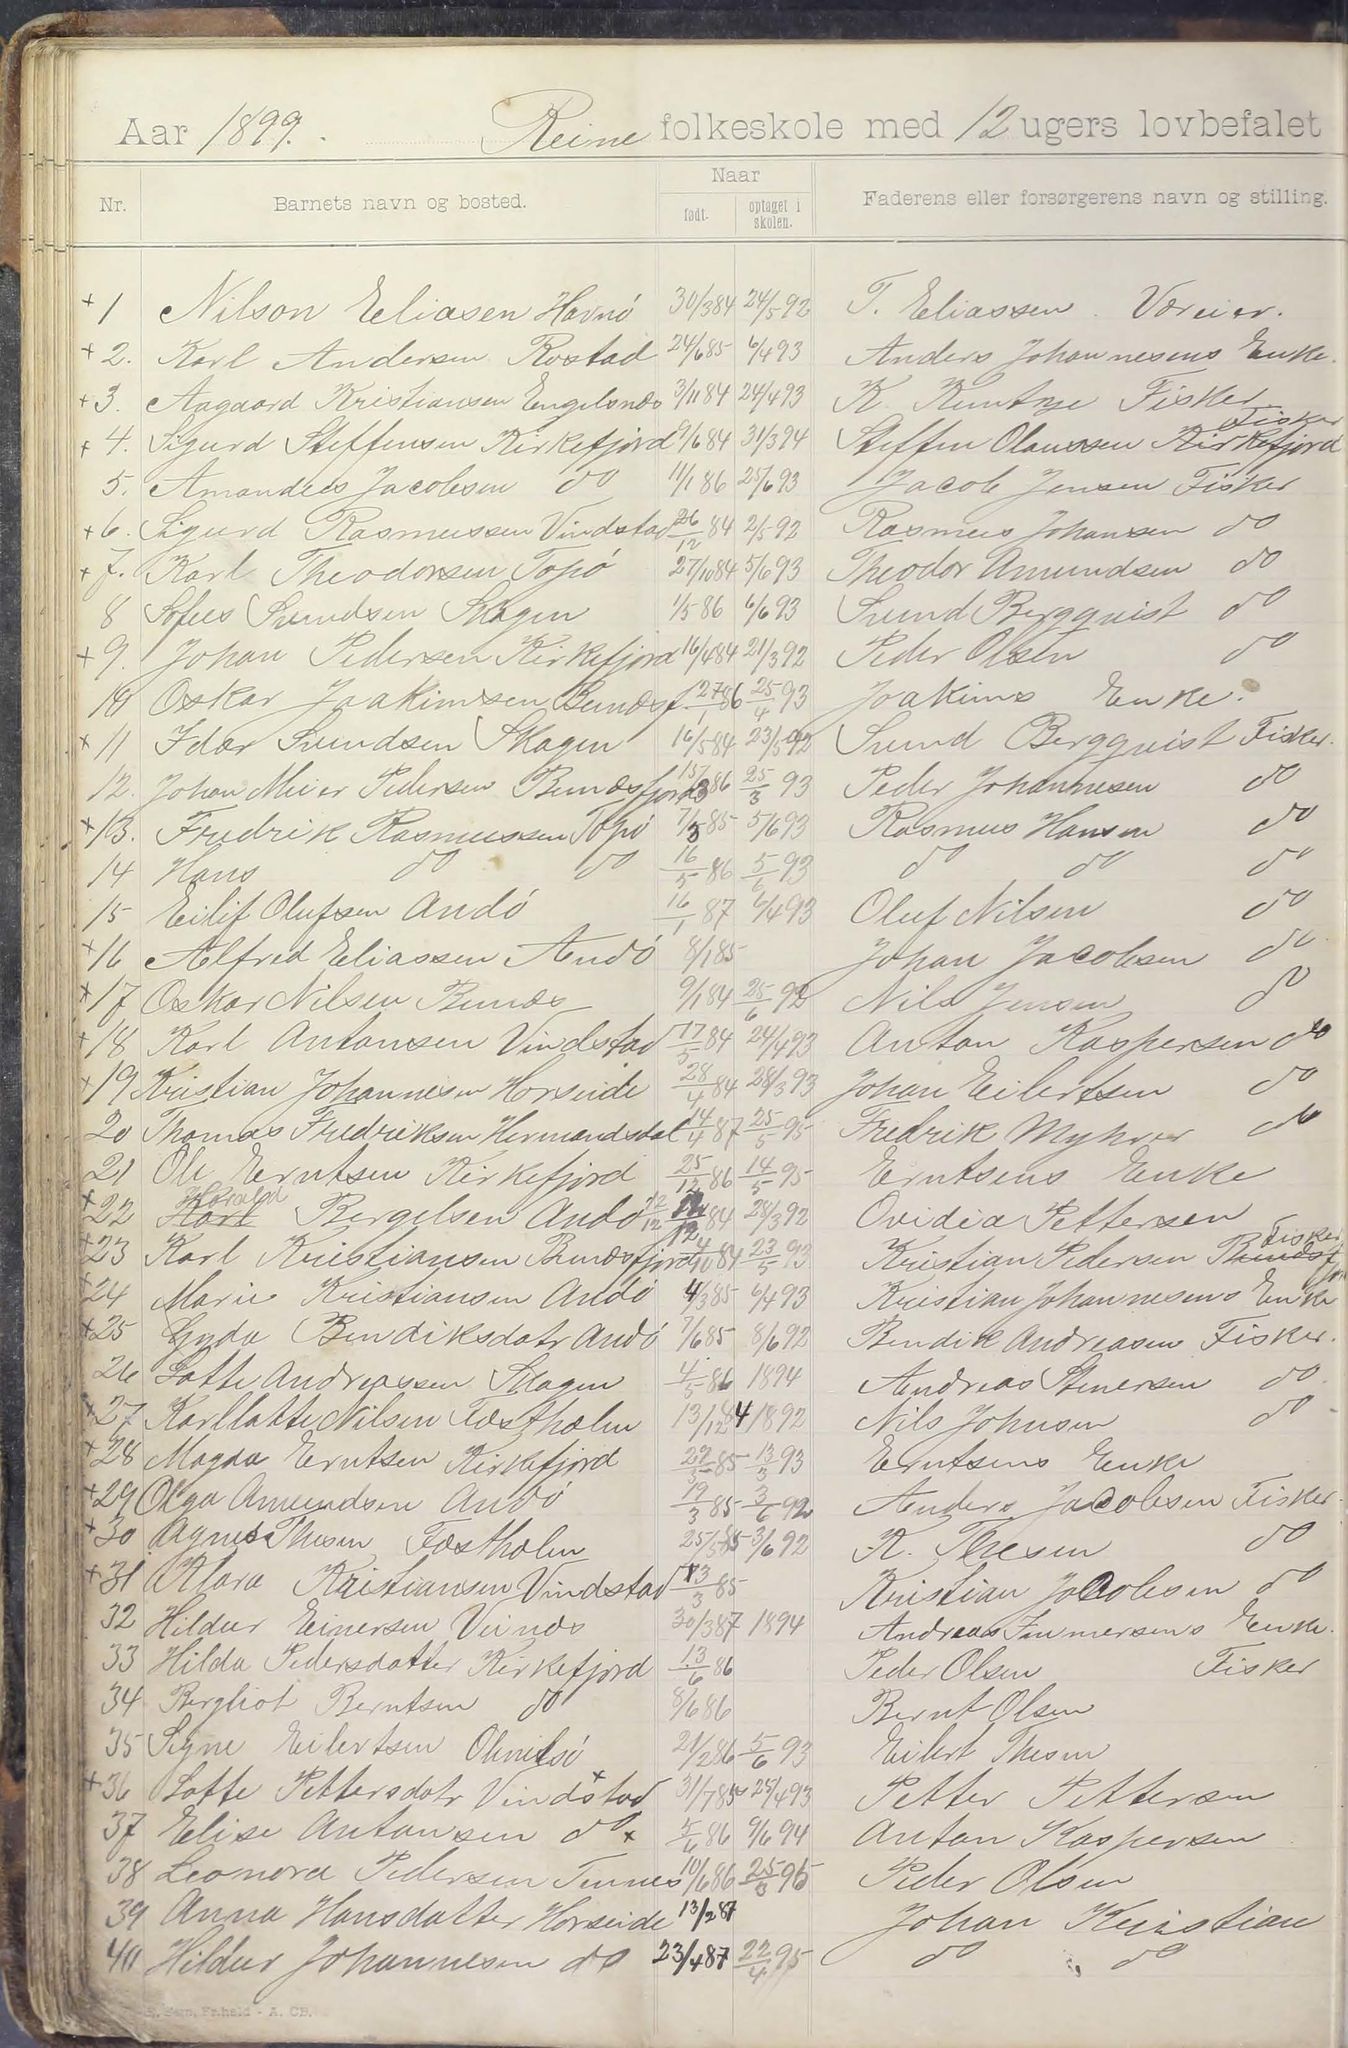 Aar 1899. Reine folkeskole med 12 ugers lovbefalet
Nr. Barnets navn og bosted. Naar født. optaget i skolen. Faderens eller forsørgerens navn og stilling.
+1 Nilson Eliasen Havnö 30/3 84 24/5 92 T. Eliassen Væreier.
+2. Karl Andersen Rostad 24/6 85 6/4 93 Anders Johannesens Enke.
+3. Aagaard Kristiansen Engelsnæs 3/11 84 24/4 93 K. Fisker
+4. Sigurd Steffensen Kirkefjord 9/6 84 31/3 94 Steffen Olaussen Kirkefjord Fisker
5. Amandus Jacobsen do 11/1 86 25/6 93 Jacob Jensen Fisker
+6. Sigurd Rasmussen Vindstad 26/12 84 2/5 92 Rasmus Johansen do
+7. Karl Theodorsen Topö 27/10 84 5/6 93 Theodor Amundsen do
8 Sofus Svendsen Skagen 1/5 86 6/6 93 Svend Bergqvist do
+9. Johan Pedersen Kirkefjord 16/4 84 21/3 92 Peder Olsen do
10 Oskar Joakimsen Bunæsf. 27/1 86 25/4 93 Joakims Enke.
+11 Idar Svendsen Skagen 16/5 84 23/5 92 Svend Bergqvist Fisker.
12. Johan Meier Pedersen Bunæsfjord 15/3 86 25/3 93 Peder Johannesen do
+13. Fredrik Rasmussen Topö 7/3 85 5/6 93 Rasmus Hansen do
14 Hans do do 16/5 86 5/6 93 do do do
15 Eilif Olufsen Andö 16/1 87 6/4 93 Oluf Nilsen do
+16 Alfred Eliassen Andö 8/1 85 Johan Jacobsen do
+17 Oskar Nilsen Bunæs 9/1 84 25/6 92 Nils Jensen do
+18 Karl Antonsen Vindstad 17/5 84 24/4 93 Anton Kaspersen do
+19 Kristian Johannesen Horseide 28/4 84 28/3 93 Johan Eilertsen do
20 Thomas Fredriksen Hermandsdal 14/4 87 25/5 95 Fredrik Myhrer do
21 Ole Erntsen Kirkefjord 25/12 86 14/5 95 Erntsens Enke
+22 Karl Harald Bergelsen Andö 12/12 84 28/3 92 Ovidia Pettersen
+23 Karl Kristiansen Bunæsfjord 4/10 84 23/5 93 Kristian Pedersen Bunæsfjor Fisker
+24 Marie Kristiansen Andö 4/3 85 6/4 93 Kristian Johannesens Enke
+25 Gyda Bendiksdatr Andö 7/6 85 8/6 92 Bendik Andreasen Fisker.
26 Lotte Andreassen Skagen 4/5 86 1894 Andreas Stenersen do
+27 Karllotte Nilsen Festholm 13/12 84 1892 Nils Johnsen do
+28 Magda Erntsen Kirkefjord 29/5 85 13/3 93 Erntsens Enke
+29 Olga Amundsen Andö 19/3 85 3/6 92 Anders Jacobsen Fisker.
+30 Agnes Thesen Festholm 25/5 85 3/6 92 K. Thesen do
+31 Klara Kristiansen Vindstad 13/3 85 Kristian Jacobsen do
32 Hildur Einersen Virnes 30/3 87 1894 Andreas Enke.
33 Hilda Pedersdatter Kirkefjord 13/6 86 Peder Olsen Fisker
34 Bergliot Berntsen do 8/6 86 Bernt Olsen
35 Signe Eilertsen Olenilsö 21/2 86 5/6 93 Eilert Thesen
+36 Lotte Pettersdatr Vindstad 31/7 85 25/4 93 Petter Pettersen
37 Elise Antonsen do 5/6 86 9/6 94 Anton Kaspersen
38 Leonora Pedersen Tennes 10/6 86 25/3 95 Peder Olsen
39 Anna Hansdatter Horseide 13/2 87 Johan Kristian
40 Hildur Johannesen do 23/4 87 22/4 95 do do